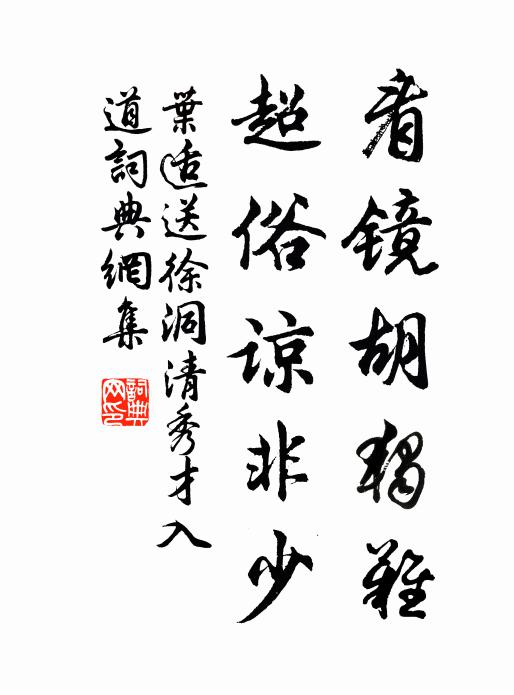 看鏡胡獨難
超俗諒非少
葉适送徐洞清秀才入
道詞典網集
詞典網印